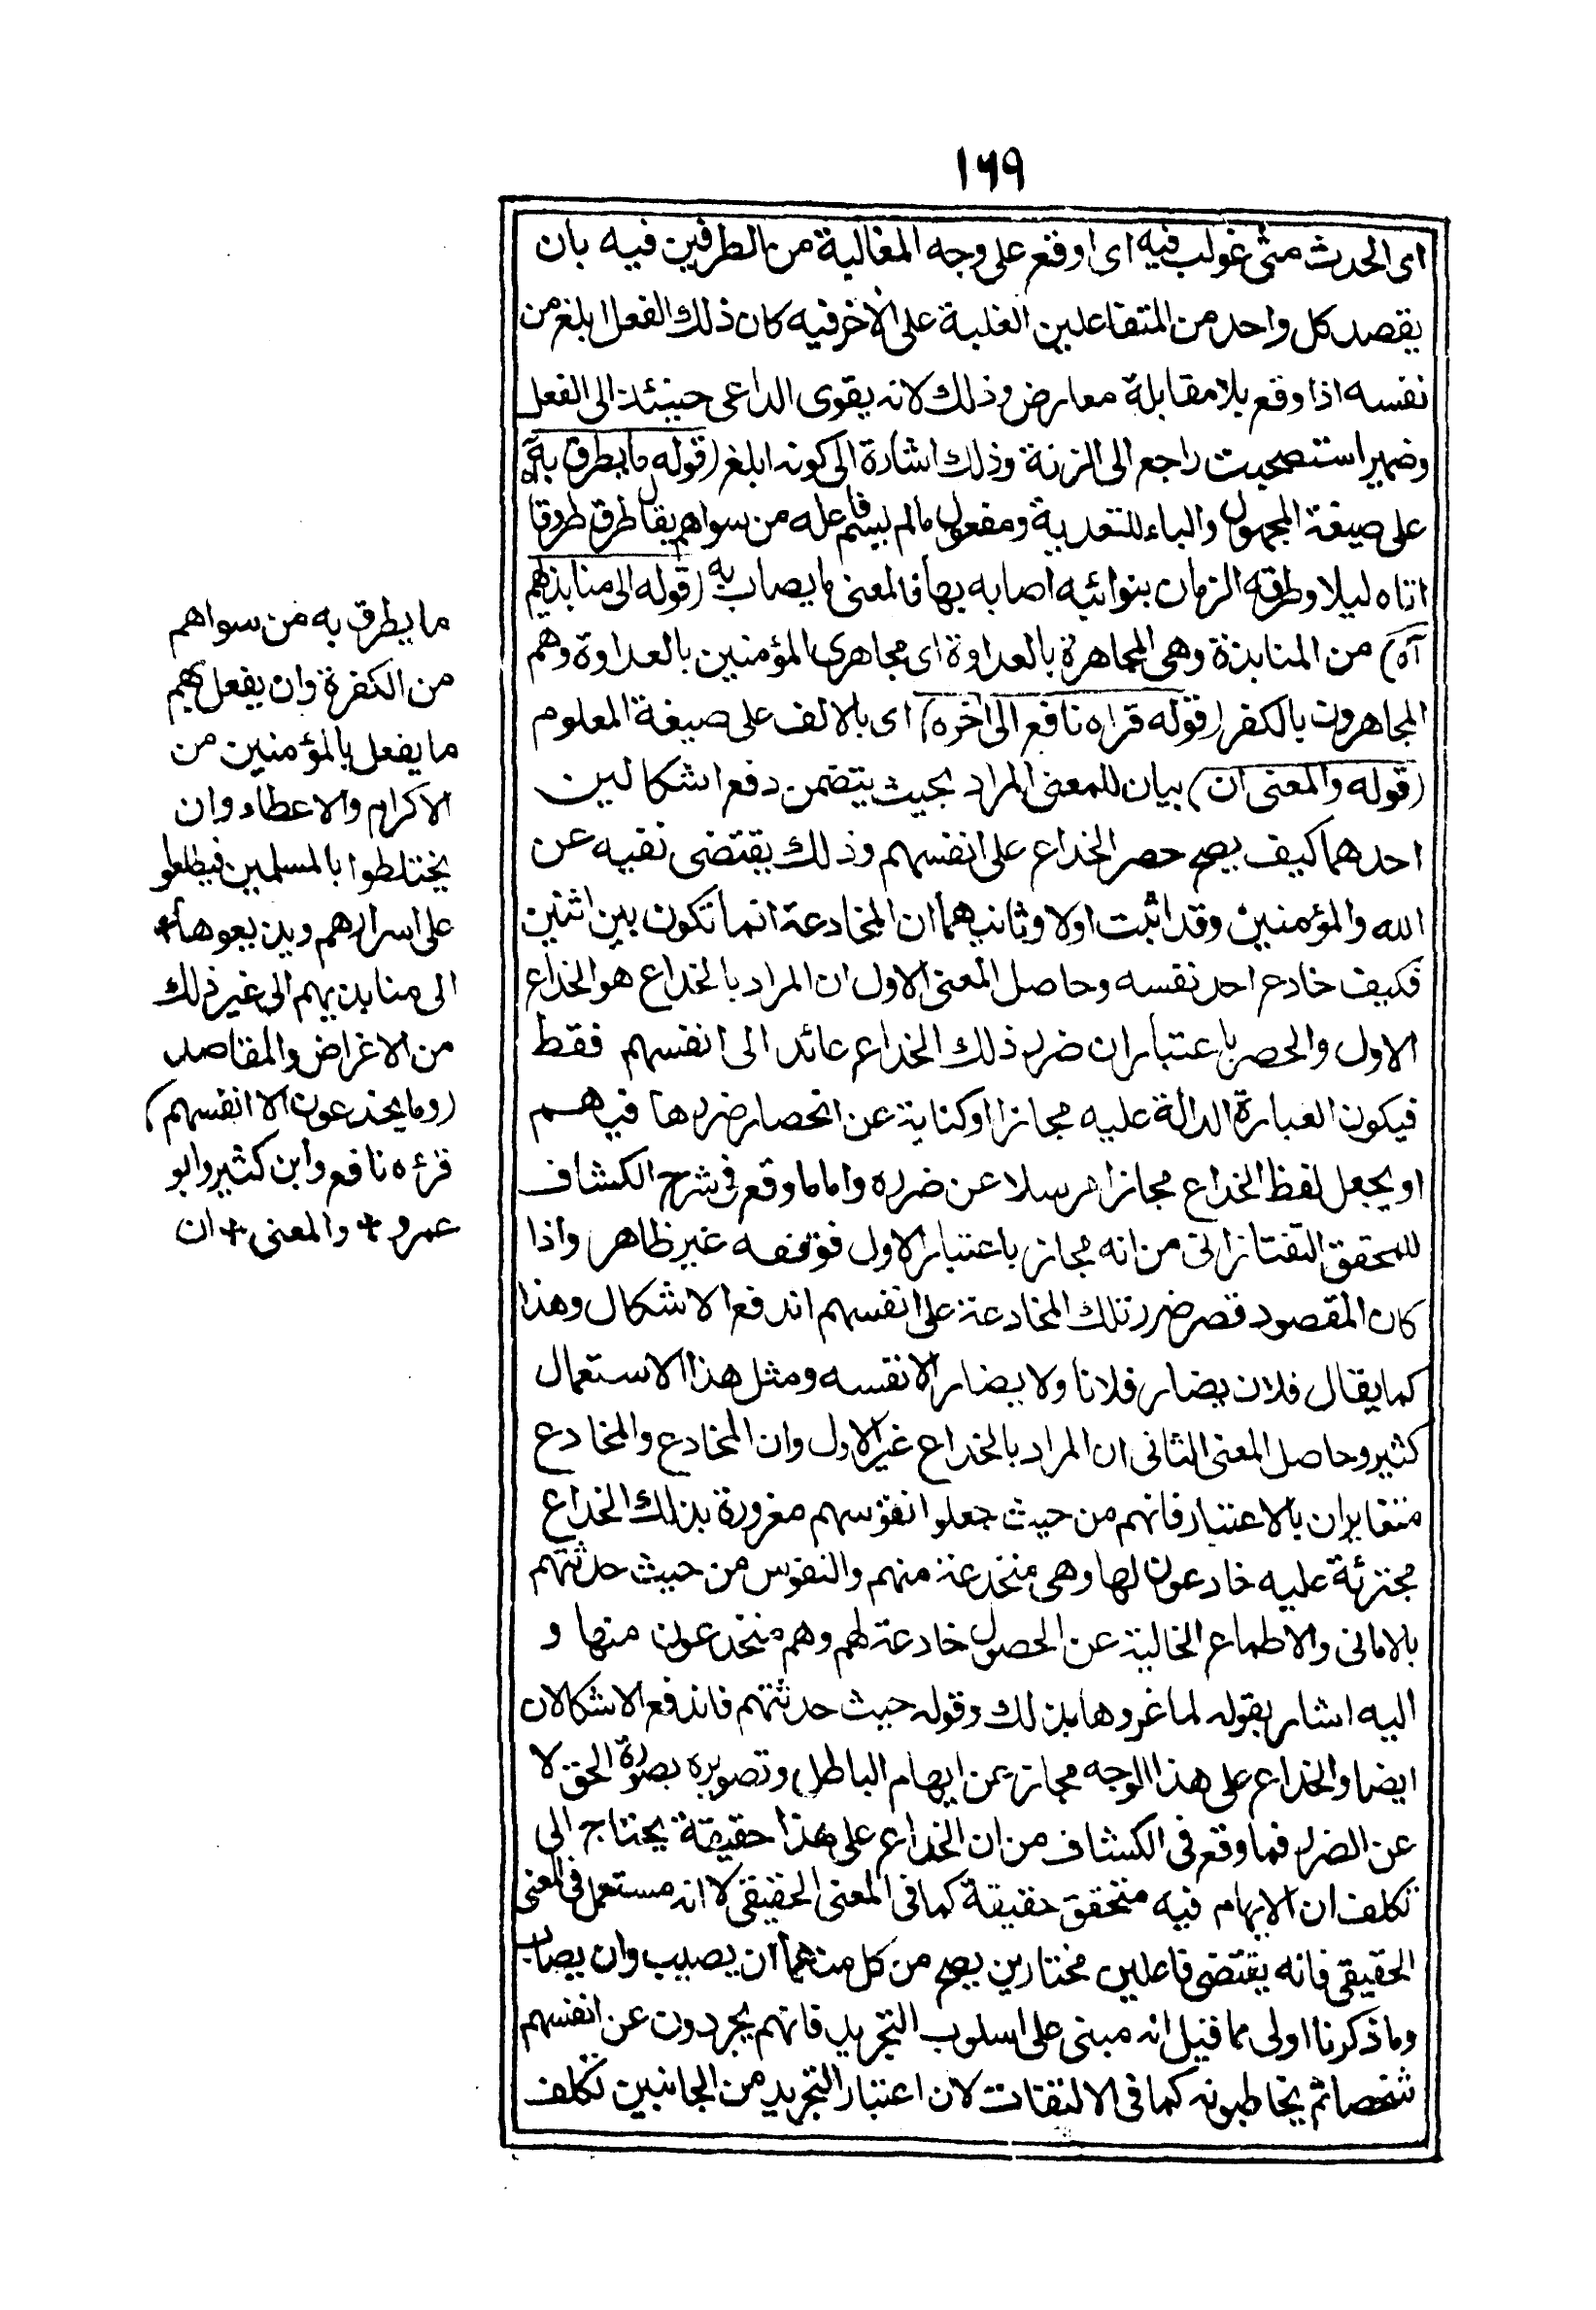 ١٦٩
اى الحدث متى غولب فيه اى اوقع على وجه المغالبة من الطرفين فيه بان
يقصد كل واحد من المتفاعلين الغلبة على الاخر فيه كان ذلك الفعل ابلغ من
نفسه اذا وقع بلا مقابلة معارض وذلك لانه يقوى الداعى حينئذ الى الفعل
وضمير استصحبت راجع الى الزنة وذلك اشارة الى كونه ابلغ (قوله ما يطرق به آه
على صيغة المجهول والباء للتعدية ومفعول مالم يسم فاعله من سواهم يقال طرق طروقا
اتاه ليلا وطرقه الزمان بنوائبه اصابه بها فالمعنى ما يصاب به (قوله الى منابذيهم
آه) من المنابذة وهى المجاهرة بالعداوة اى مجاهرى المؤمنين بالعداوة وهم
المجاهرون بالكفر (قوله قراه نافع الى اخره) اى بالالف على صيغة المعلوم
(قوله والمعنى ان) بيان للمعنى المراد بحيث يتضمن دفع اشكالين
احدهما كيف يصح حصر الخداع على انفسهم وذلك يقتضى نفيه عن
الله والمؤمنين وقد اثبت اولا وثانيهما ان المخادعة انما تكون بين اثنين
فكيف خادع احد نفسه وحاصل المعنى الاول ان المراد بالخداع هو الخداع
الاول والحصر باعتبار ان ضرر ذلك الخداع عائد الى انفسهم فقط
فيكون العبارة الدالة عليه مجازا او كناية عن انحصار ضررها فيهم
او يجعل لفظ الخداع مجازا مرسلا عن ضرره واما ما وقع فى شرح الكشاف
للمحقق التفتازانى من انه مجاز باعتبار الاول فوجهه غير ظاهر واذا
كان المقصود قصر ضرر تلك المخادعة على انفسهم اندفع الاشكال وهذا
كما يقال فلان يضار فلانا ولا يضار الا نفسه ومثل هذا الاستعمال
كثير وحاصل المعنى الثانى ان المراد بالخداع غير الاول وان المخادع والمخادع
متغايران بالاعتبار فانهم من حيث جعلوا نفوسهم مغرورة بذلك الخداع
مجترئة عليه خادعون لها وهى منخدعة منهم والنفوس من حيث حدثتهم
بالامانى والاطماع الخالية عن الحصول خادعة لهم وهم منخدعون منها و
اليه اشار بقوله لما غروها بذلك وقوله حيث حدثتهم فاندفع الاشكالان
ايضا والخداع على هذا الوجه مجاز عن ايهام الباطل وتصويره بصورة الحق لا
عن الضرر فما وقع فى الكشاف من ان الخداع على هذا حقيقة يحتاج الى
تكلف ان الايهام فيه متحقق حقيقة كما فى المعنى الحقيقى لا انه مستعمل فى المعنى
الحقيقى فانه يقتضى فاعلين مختارين يصح من كل منهما ان يصيب وان يصاب
وما ذكرنا اولى مما قيل انه مبنى على اسلوب التجريد فانهم يجردون عن انفسهم
شخصا ثم يخاطبونه كما فى الالتفات لان اعتبار التجريد من الجانبين تكلف
ما يطرق به من سواهم
من الكفرة وان يفعل بهم
ما يفعل بالمؤمنين من
الاكرام والاعطاء وان
يختلطوا بالمسلمين فيطلعوا
على اسرارهم ويذيعوها +
الى منابذيهم الى غير ذلك
من الاغراض والمقاصد
(وما يخدعون الا انفسهم)
قرءه نافع وابن كثير وابو
عمرو + والمعنى + ان